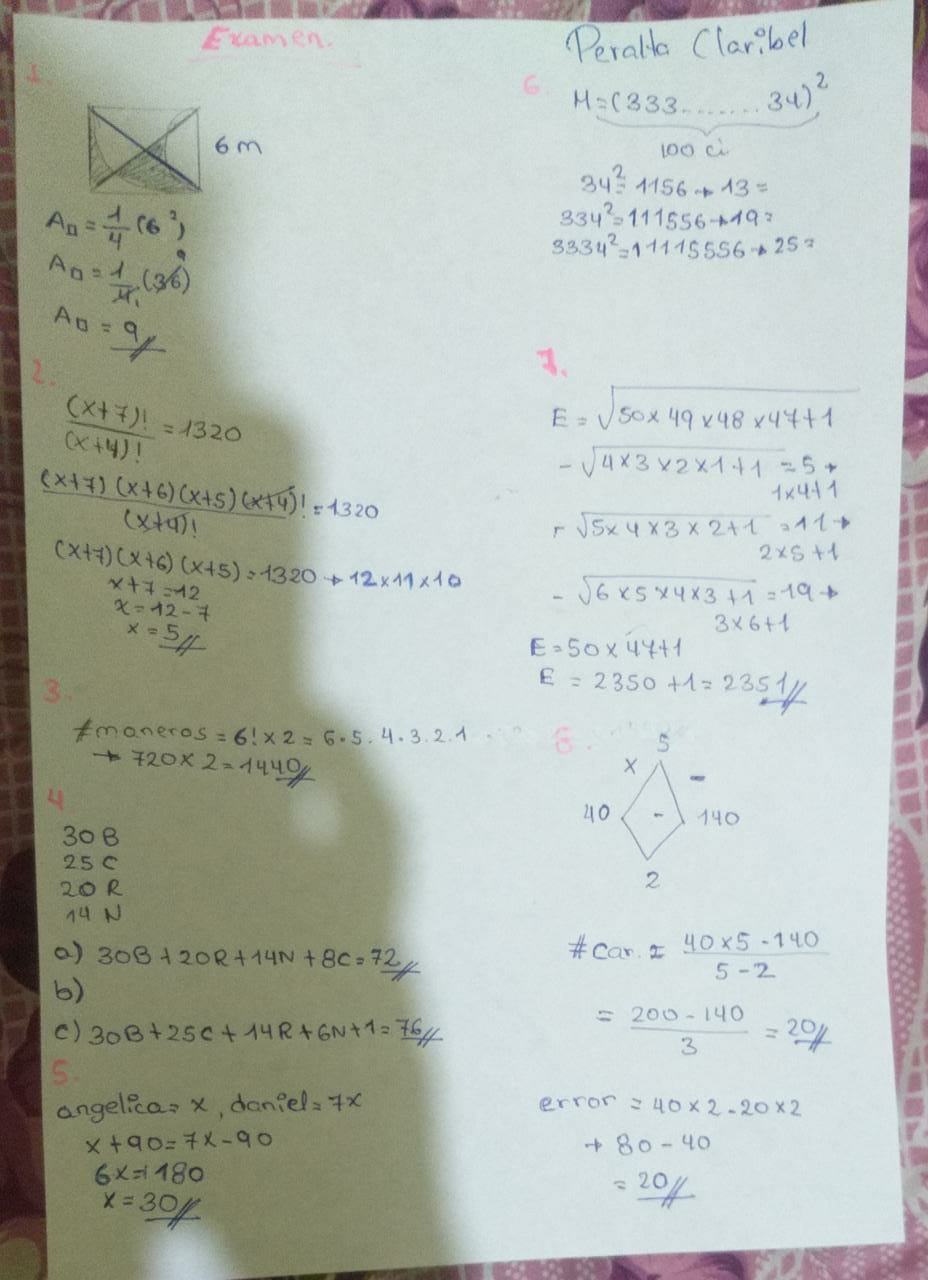 Examen.
Peralta Claribel
1.
6 m
A□ = 1/4 (6²)
A□ = 1/4 (36) 9
A□ = 9
2.
(x+7)! / (x+4)! = 1320
(x+7)(x+6)(x+5)(x+4)! / (x+4)! = 1320
(x+7)(x+6)(x+5) = 1320 → 12x11x10
x+7=12
x=12-7
x=5
3.
#maneros = 6! x 2 = 6·5.4·3.2.1
→ 720 x 2 = 1440
4
30 B
25 C
20 R
14 N
a) 30B+20R+14N+8C=72
b)
c) 30B+25C+14R+6N+1=76
5.
angelica= x, daniel=7x
x+90=7x-90
6x=180
x=30
6.
M=(333.......34)²
100 ci
34²=1156→13=
334²=111556→19=
3334²=11115556→25=
7.
E = √50x49x48x47+1
-√4x3x2x1+1 = 5→
1x4+1
-√5x4x3x2+1 = 11→
2x5+1
-√6x5x4x3+1 = 19→
3x6+1
E=50x47+1
E = 2350+1=2351
8.
5
x -
40 - 140
2
#Car. = 40x5-140 / 5-2
= 200-140 / 3 = 20
error = 40x2-20x2
→ 80-40
= 20